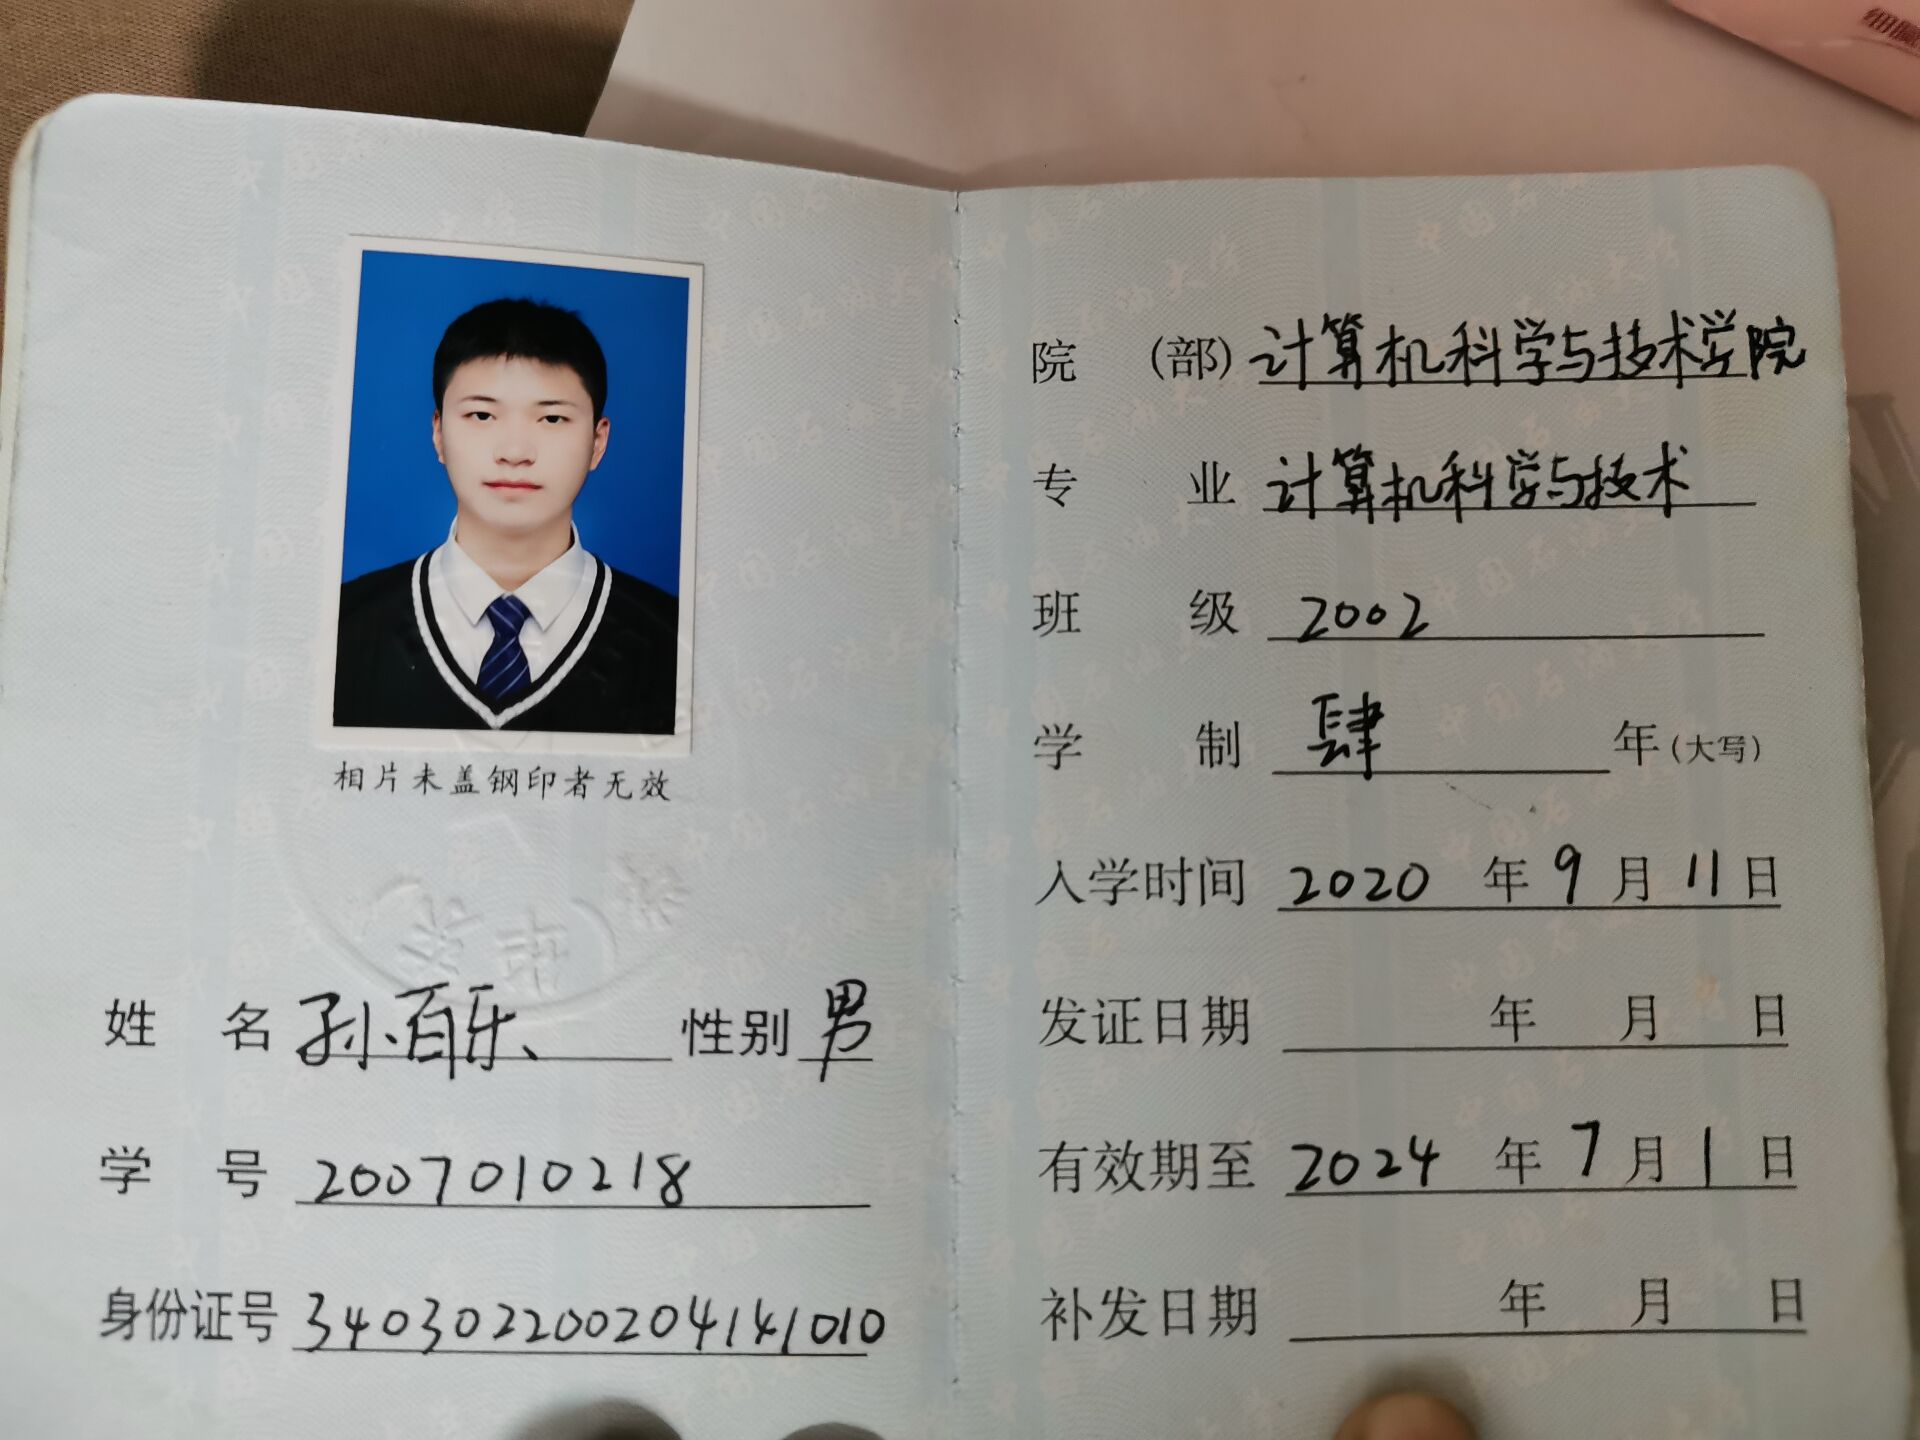 相片未盖钢印者无效
姓 名 孙百乐 性别 男
学 号 2007010218
身份证号 340302200204141010
院 (部) 计算机科学与技术学院
专 业 计算机科学与技术
班 级 2002
学 制 肆 年(大写)
入学时间 2020 年 9 月 11 日
发证日期 年 月 日
有效期至 2024 年 7 月 1 日
补发日期 年 月 日